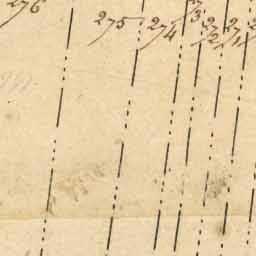 276
275
274
273
272
271